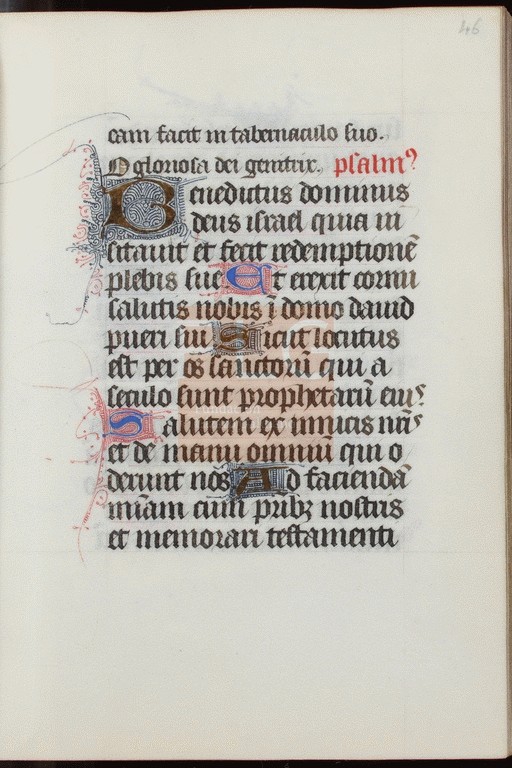 46
eam facit in tabernaculo suo.
O gloriosa dei genitrix. psalmꝰ
Benedictus dominus
deus israel quia ui
sitauit et fecit redemptionē
plebis sue Et erexit cornu
salutis nobis ī domo dauid
pueri sui Sicut locutus
est per os sanctorū qui a
seculo sunt prophetarū eiuꝰ
Salutem ex inimicis nr̄is
et de manu omniū qui o
derunt nos Ad faciendā
mīam cum pr̄ibꝫ nostris
et memorari testamenti